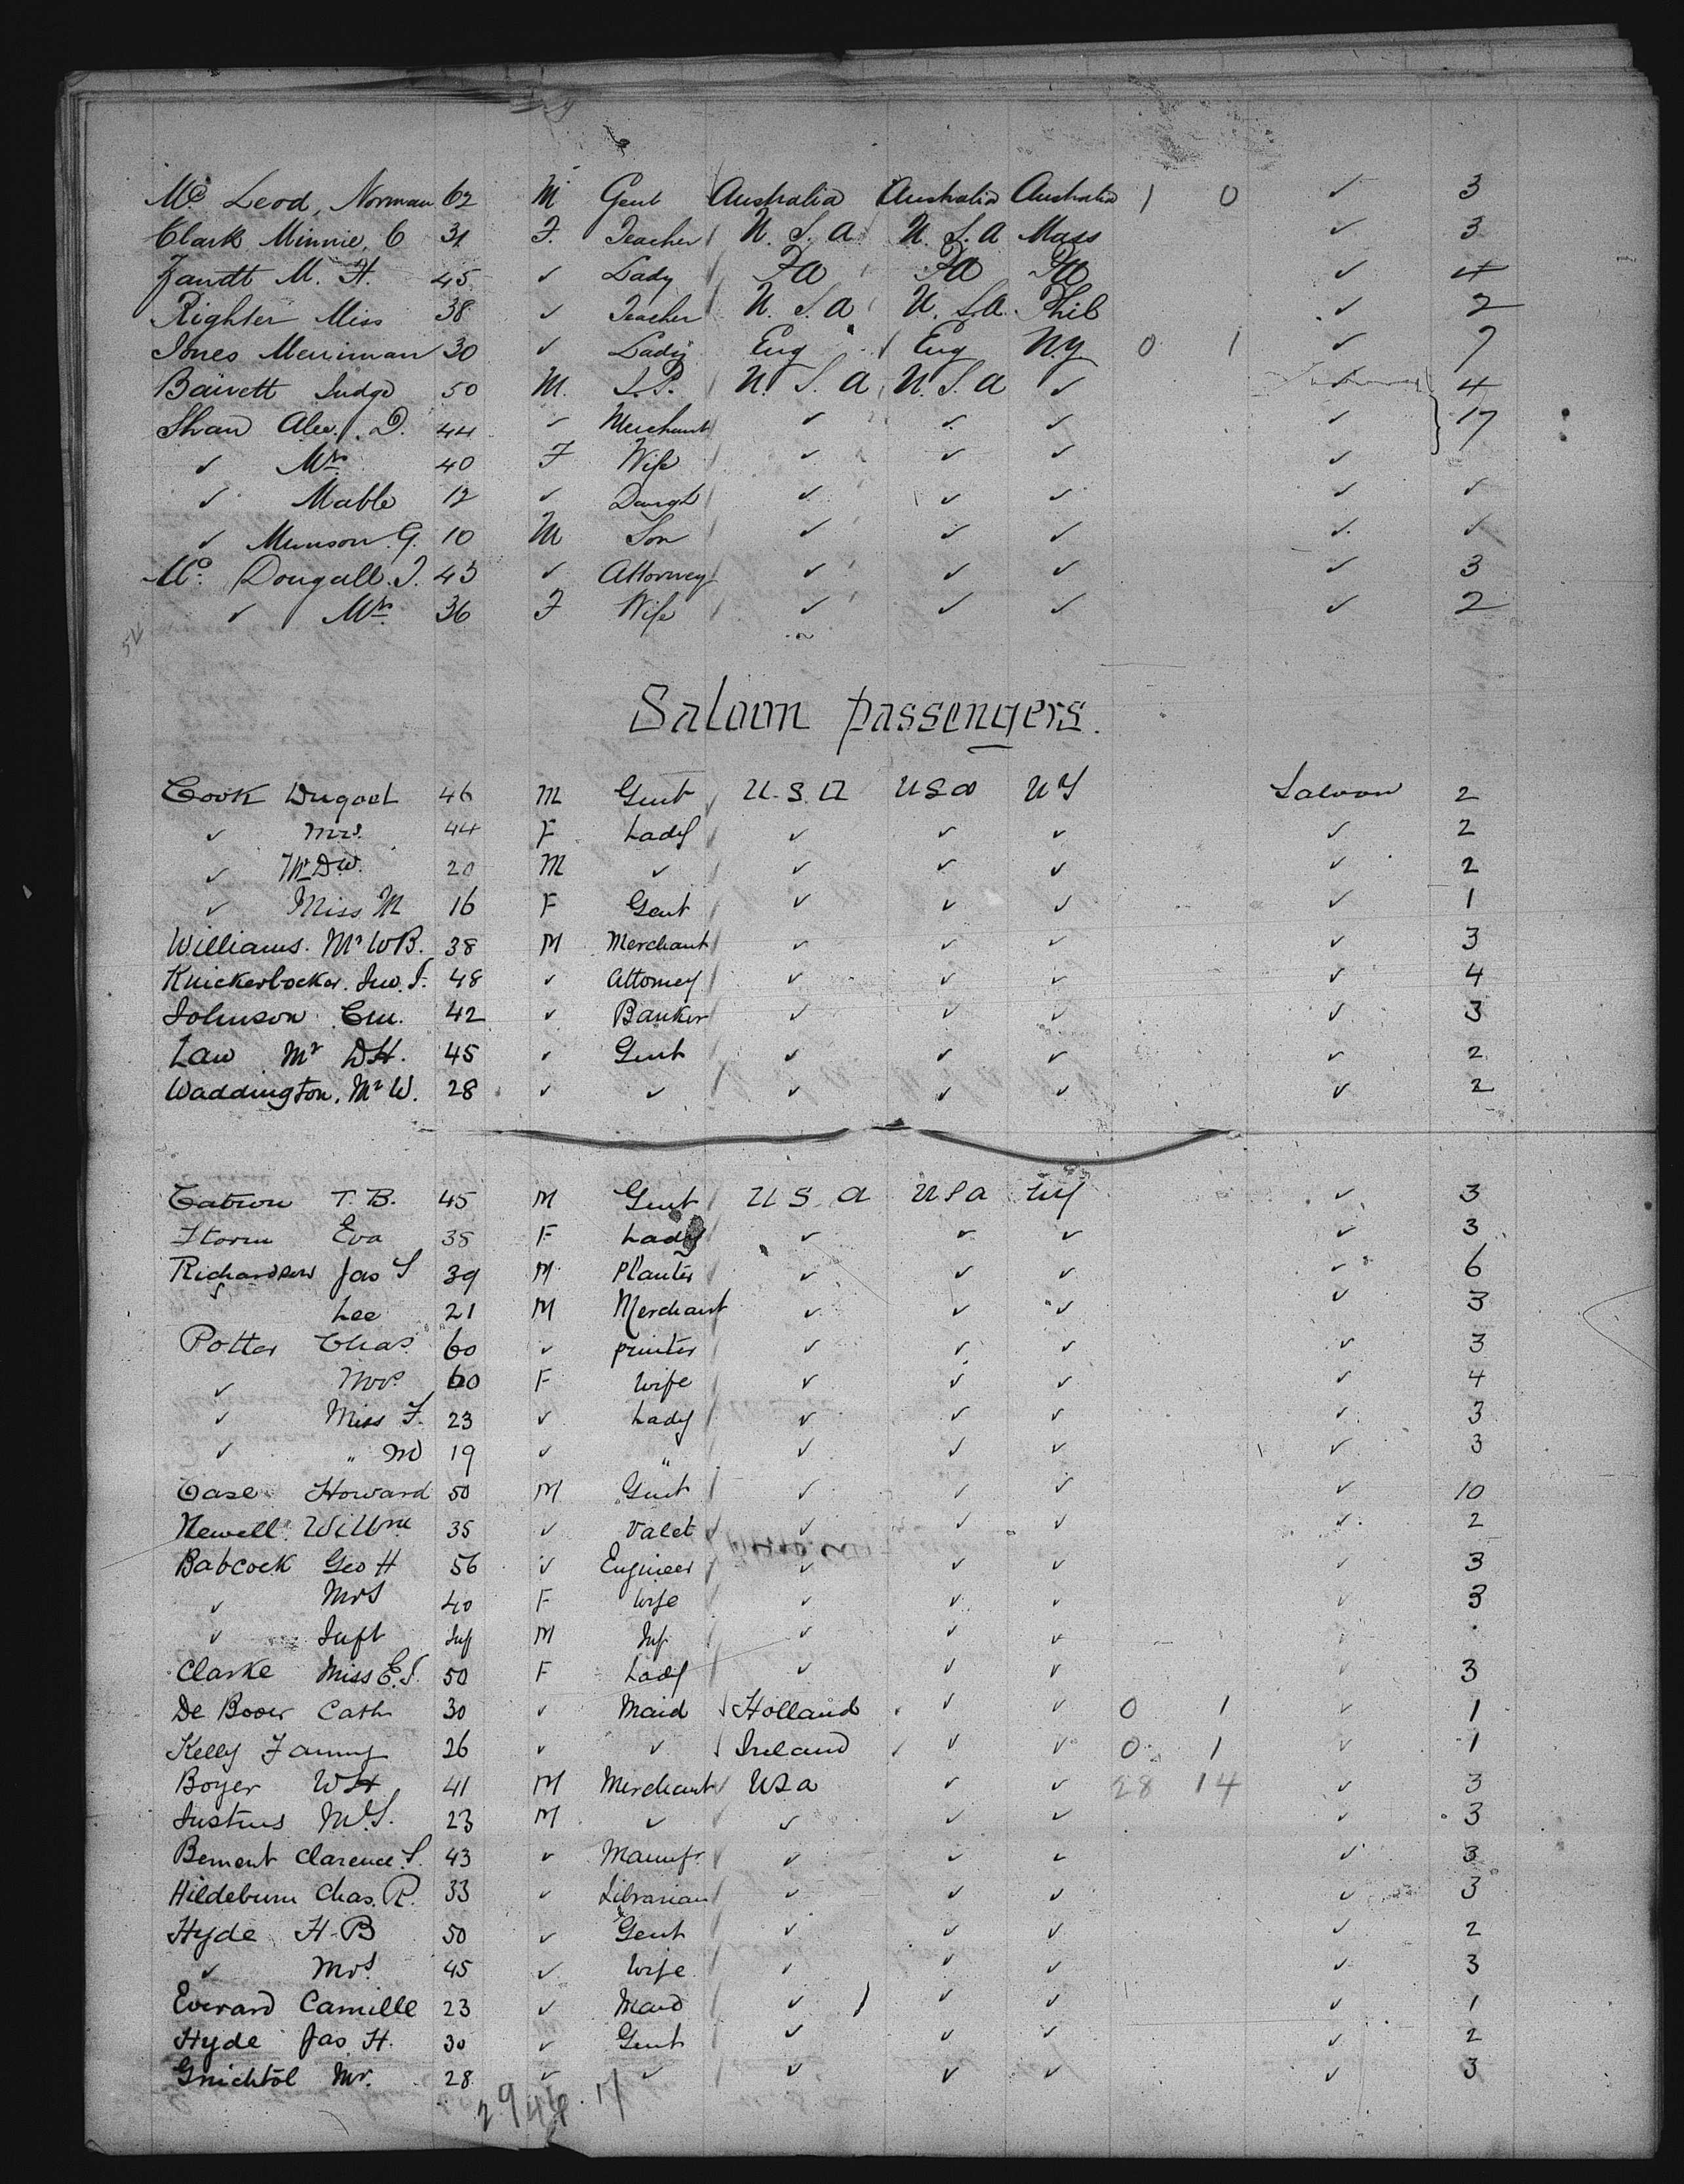 Mc Leod, Norman 62 M Gent Australia Australia Australia 1 0 ✓ 3
Clark Minnie, C 31 F. Teacher U.S.A U.S.A Mass ✓ 3
Zandt M. H. 45 ✓ Lady Pa Pa Pa ✓ 4
Righter Miss 38 ✓ Teacher U.S.A U.S.A. Phil ✓ 2
Jones Merriman 30 ✓ Lady Eng Eng N.Y 0 1 ✓ 7
Barrett Judge 50 M. U.S.A U.S.A ✓ 4
Shaw Alex. D. 44 ✓ Merchant ✓ ✓ ✓ ✓ 17
✓ Mrs 40 F Wife ✓ ✓ ✓ ✓
✓ Mable 12 ✓ Daugh ✓ ✓ ✓ ✓ ✓
✓ Munson G. 10 M Son ✓ ✓ ✓ ✓ ✓
Mc Dougall. 43 ✓ Attorney ✓ ✓ ✓ ✓ 3
✓ Mrs 36 F Wife ✓ ✓ ✓ ✓ 2
Saloon passengers.
Cook 46 M Gent U.S.A USA NY Saloon 2
✓ Mrs. 44 F Lady ✓ ✓ ✓ ✓ 2
✓ Mr DW. 20 M ✓ ✓ ✓ ✓ ✓ 2
✓ Miss M 16 F Gent ✓ ✓ ✓ ✓ 1
Williams. Mr WB. 38 M Merchant ✓ ✓ ✓ ✓ 3
Knickerbocker. Jno. 48 ✓ Attorney ✓ ✓ ✓ ✓ 4
Johnson 42 ✓ Banker ✓ ✓ ✓ ✓ 3
Law Mr DH. 45 ✓ Gent ✓ ✓ ✓ ✓ 2
Waddington, Mr W. 28 ✓ ✓ ✓ ✓ ✓ ✓ 2
Catron T. B. 45 M Gent U S A USA NY ✓ 3
Storm Eva 38 F Lady ✓ ✓ ✓ ✓ 3
Richardson Jas S 39 M Planter ✓ ✓ ✓ ✓ 6
Lee 21 M Merchant ✓ ✓ ✓ ✓ 3
Potter Chas. 60 ✓ printer ✓ ✓ ✓ ✓ 3
✓ Mrs. 60 F Wife ✓ ✓ ✓ ✓ 4
✓ Miss F. 23 ✓ Lady ✓ ✓ ✓ ✓ 3
✓ " M 19 ✓ " ✓ ✓ ✓ ✓ 3
Case Howard 50 M Gent ✓ ✓ ✓ ✓ 10
Newell Willm 35 ✓ Valet ✓ ✓ ✓ ✓ 2
Babcock Geo H 56 ✓ Engineer ✓ ✓ ✓ ✓ 3
✓ Mrs 40 F Wife ✓ ✓ ✓ ✓ 3
✓ Inft Inf M Inf ✓ ✓ ✓ ✓
Clarke Miss E. 50 F Lady ✓ ✓ ✓ ✓ 3
De Booer Cath 30 ✓ Maid Holland ✓ ✓ 0 1 ✓ 1
Kelly Fanny 26 ✓ ✓ Ireland ✓ ✓ 0 1 ✓ 1
Boyer WH 41 M Merchant USA ✓ ✓ 28 14 ✓ 3
Justus M.S. 23 M ✓ ✓ ✓ ✓ ✓ 3
Bement Clarence S. 43 ✓ Manufr ✓ ✓ ✓ ✓ 3
Hildeburn Chas. R. 33 ✓ Librarian ✓ ✓ ✓ ✓ 3
Hyde H B 50 ✓ Gent ✓ ✓ ✓ ✓ 2
✓ Mrs. 45 ✓ Wife ✓ ✓ ✓ ✓ 3
Everard Camille 23 ✓ Maid ✓ ✓ ✓ ✓ 1
Hyde Jas. H. 30 ✓ Gent ✓ ✓ ✓ ✓ 2
Mr. 28 ✓ ✓ ✓ ✓ ✓ ✓ 3
29 17